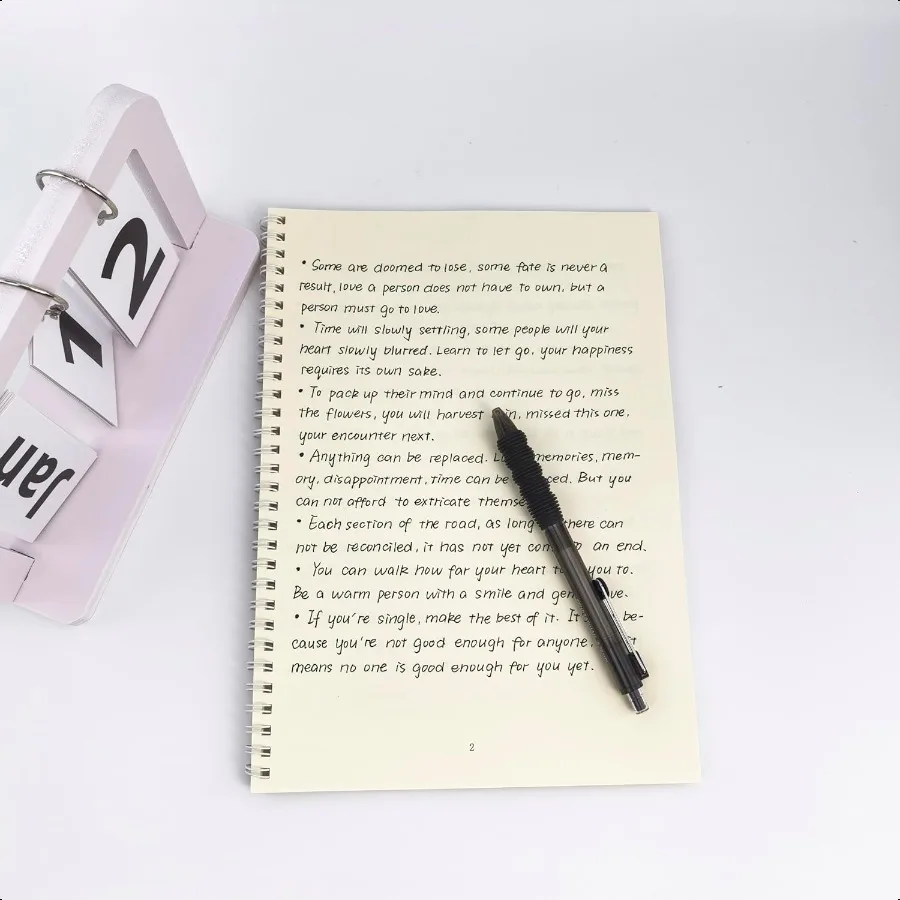 2
1
Jan
• Some are doomed to lose, some fate is never a
result, love a person does not have to own, but a
person must go to love.
• Time will slowly settling, some people will your
heart slowly blurred. Learn to let go, your happiness
requires its own sake.
• To pack up their mind and continue to go, miss
the flowers, you will harvest in, missed this one,
your encounter next.
• Anything can be replaced. memories, mem-
ory, disappointment, time can be ced. But you
can not afford to extricate themse
• Each section of the road, as long there can
not be reconciled, it has not yet com an end.
• You can walk how far your heart you to.
Be a warm person with a smile and gen ve.
• If you're single, make the best of it. It's be-
cause you're not good enough for anyone, it
means no one is good enough for you yet.
2